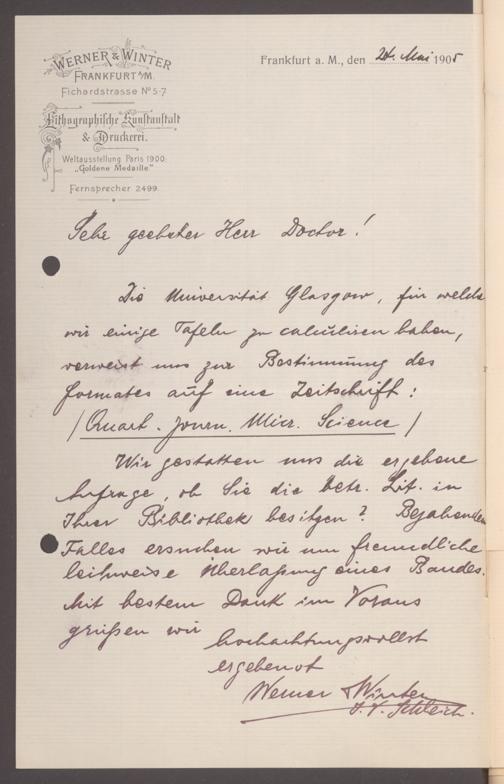 WERNER & WINTER
FRANKFURT A/M.
Fichardstrasse No 5-7
Lithographische Kunstanstalt
& Druckerei.
Weltausstellung Paris 1900:
„Goldene Medaille“
Fernsprecher 2499.
Frankfurt a. M., den 24. Mai 1905
Sehr geehrter Herr Doctor!
Die Universität Glasgow, für welche
wir einige Tafeln zu calculiren haben,
verweist uns zur Bestimmung des
Formates auf eine Zeitschrift:
/ Quart. Journ. Micr. Science /
Wir gestatten uns die ergebene
Anfrage, ob Sie die betr. Lit. in
Ihrer Bibliothek besitzen? Bejahenden
Falles ersuchen wir um freundliche
leihweise Überlaßung eines Bandes.
Mit bestem Dank im Voraus
grüßen wir hochachtungsvollst
ergebenst
Werner & Winter